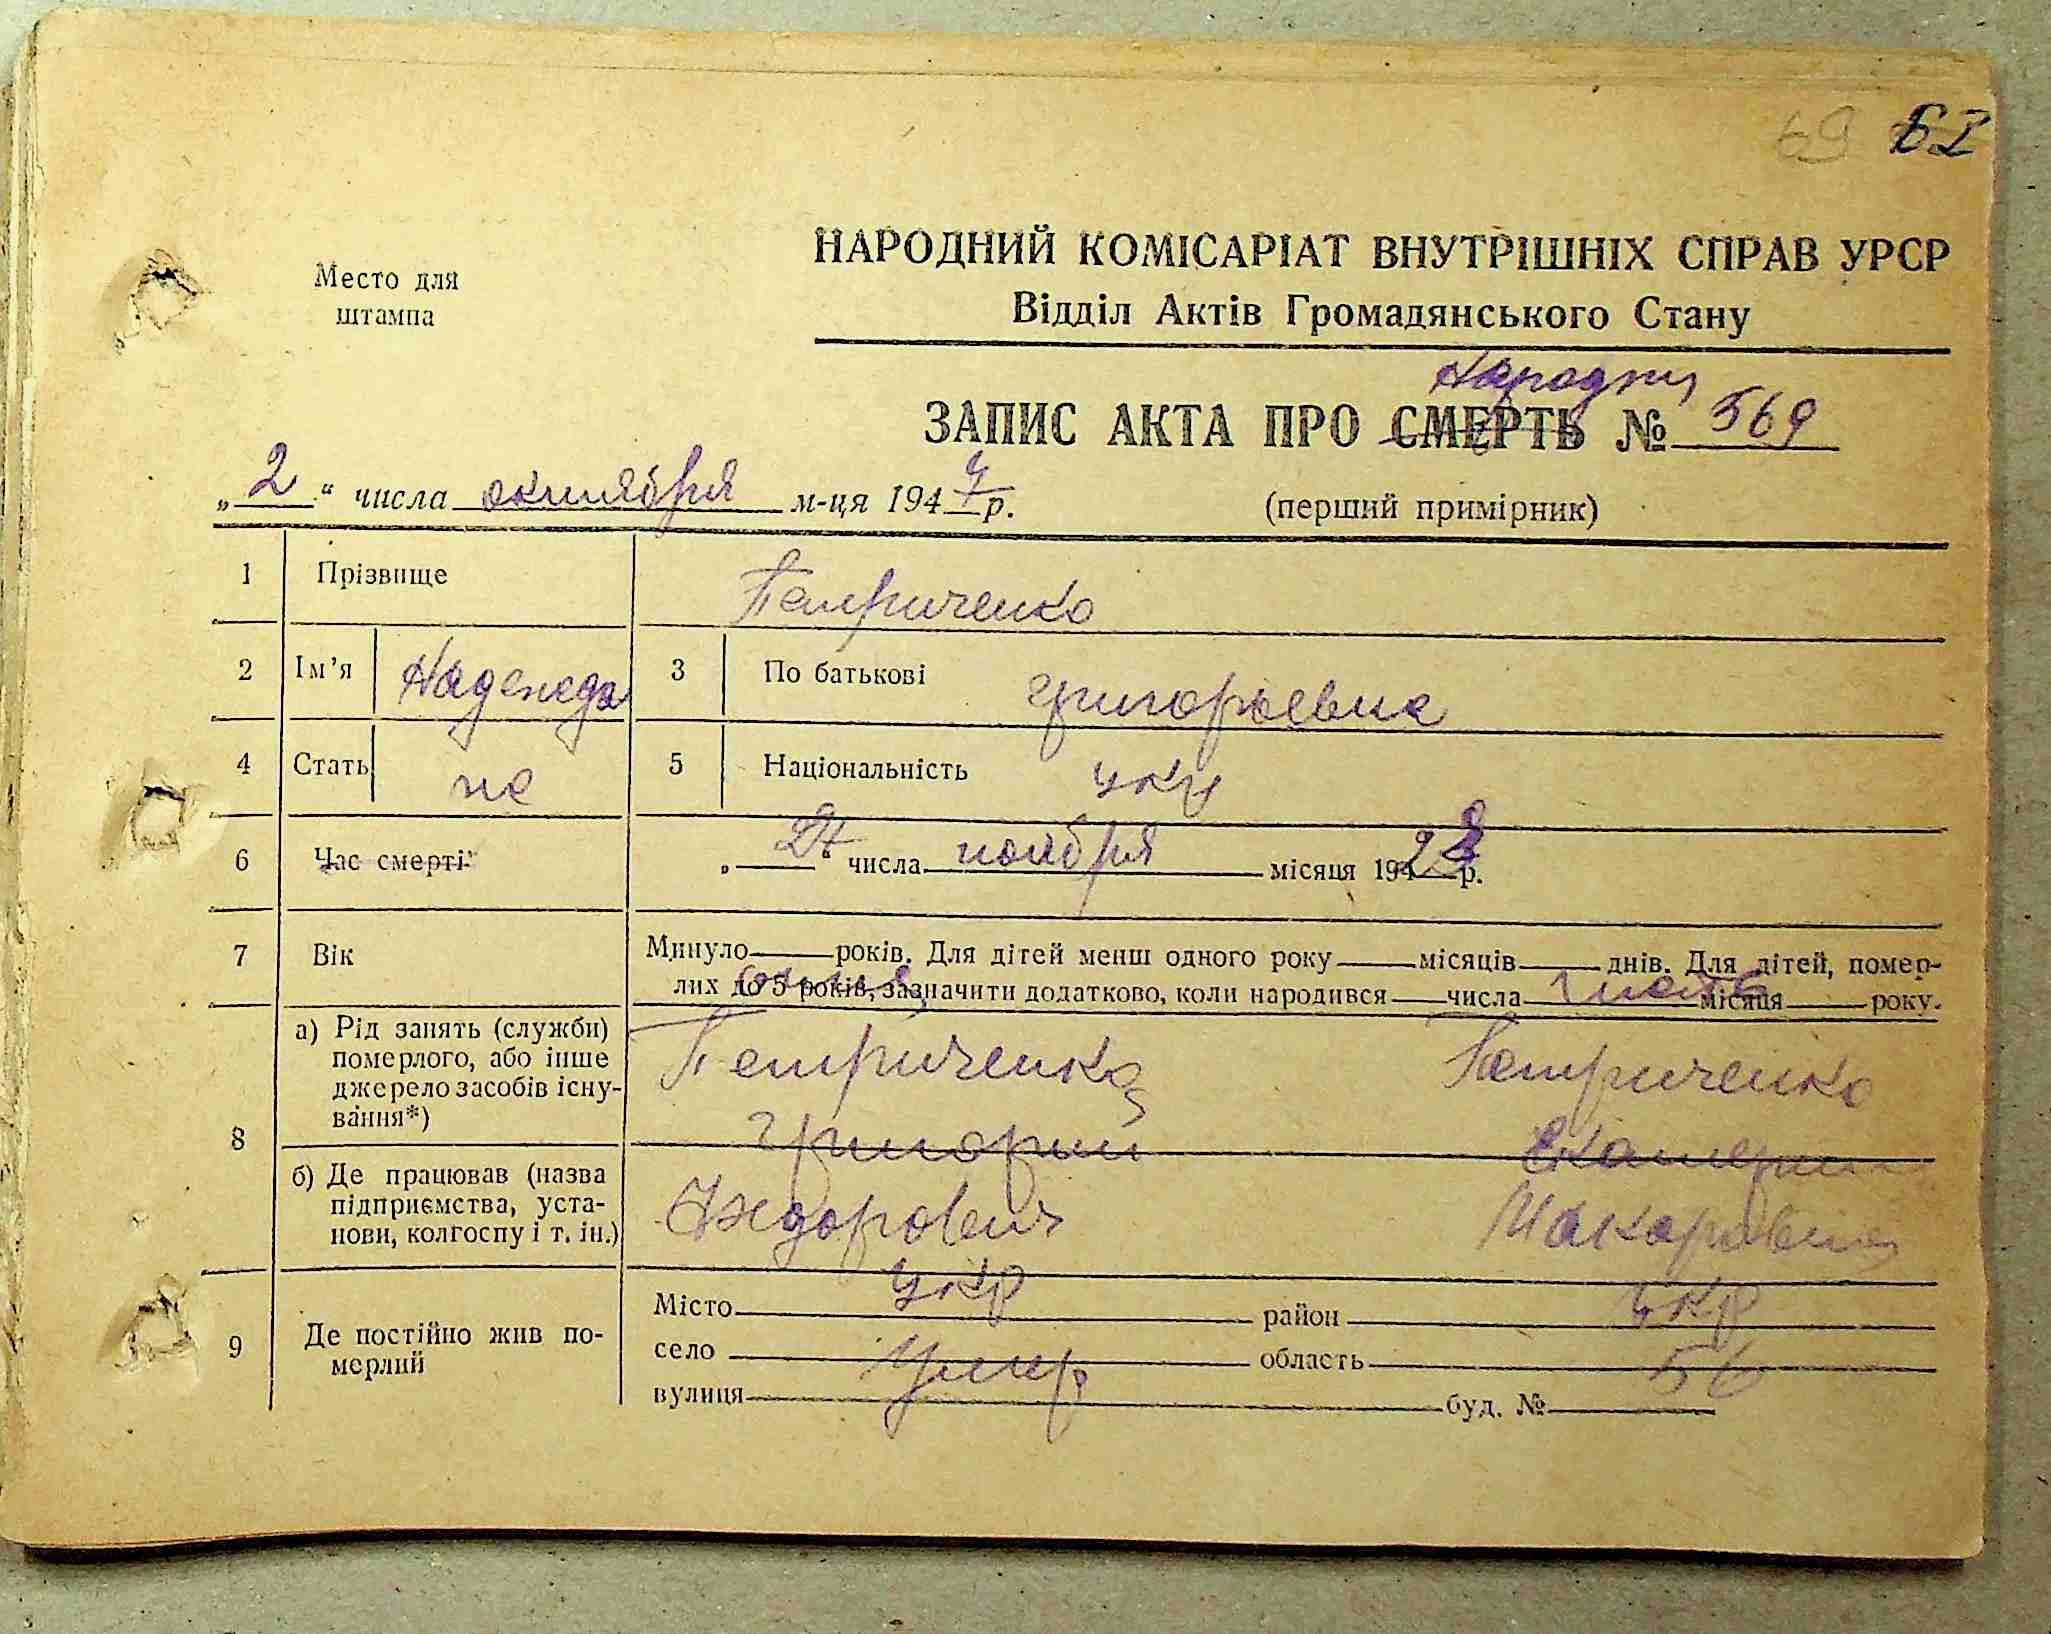 69 62
Место для
штампа
НАРОДНИЙ КОМІСАРІАТ ВНУТРІШНІХ СПРАВ УРСР
Відділ Актів Громадянського Стану
ЗАПИС АКТА ПРО СМЕРТЬ № 569
„2“ числа октября м-ця 1947 р.
(перший примірник)
1 Прізвище Петриченко
2 Ім'я Надежда 3 По батькові Григорьевна
4 Стать 5 Національність укр
6 Час смерті „24“ числа ноября місяця 1928 р.
7 Вік Минуло років. Для дітей менш одного року місяців днів. Для дітей, помер-
лих до 5 років, зазначити додатково, коли народився числа місяця року.
8 а) Рід занять (служби)
померлого, або інше
джерело засобів існу-
вання*)
Петриченко Петриченко
Григорий
б) Де працював (назва
підприємства, уста-
нови, колгоспу і т. ін.)
Макаровна
укр укр
9 Де постійно жив по-
мерлий
Місто район
село область
вулиця буд. №
умер 56